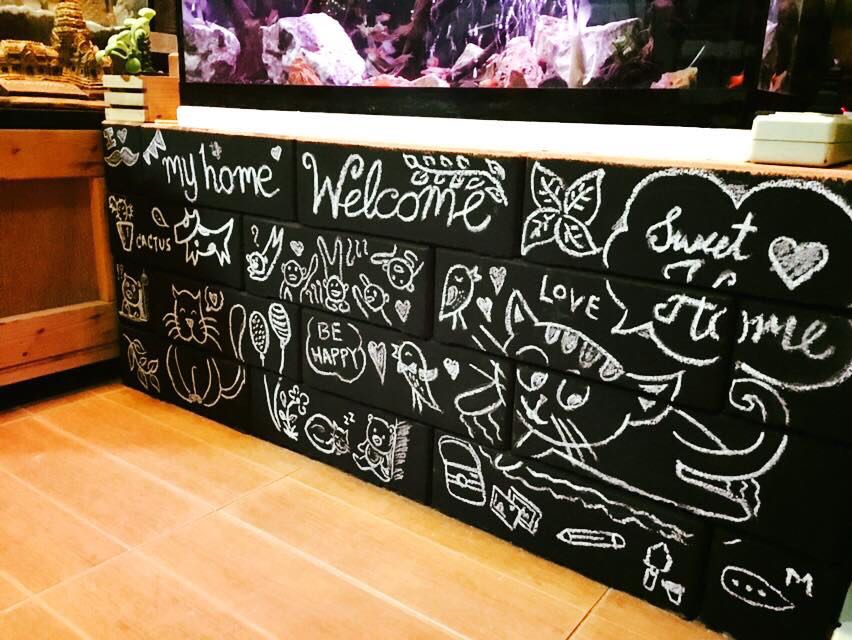 my home
Welcome
Sweet
Home
CACTUS
LOVE
BE
HAPPY
zz
M